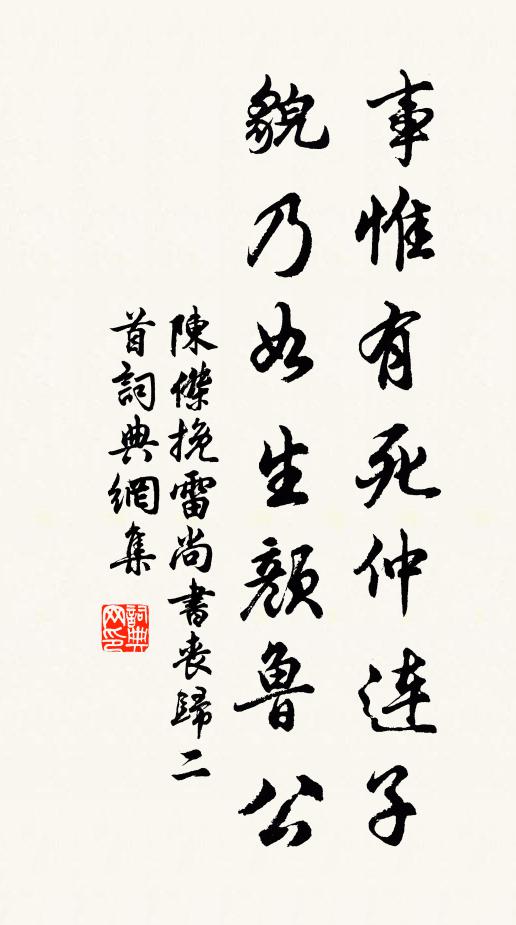 事惟有死仲連子
貌乃如生顏魯公
陳傑挽雷尚書喪歸二
首詞典網集
詞典
网印